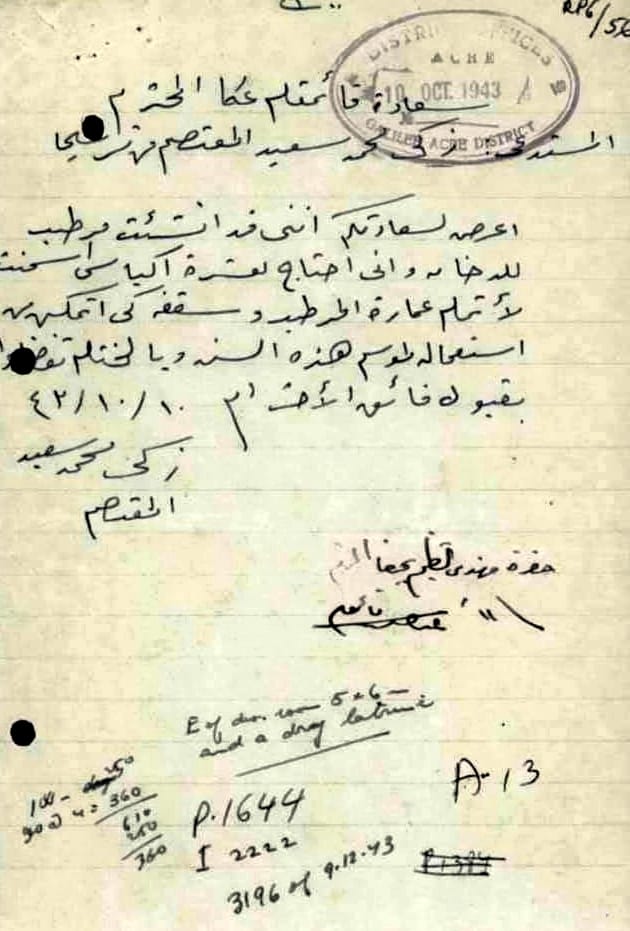 RP6/56
DISTRICT OFFICES
ACRE
10 OCT. 1943
GALILEE ACRE DISTRICT
سعادة قائمقام عكا المحترم
المستدعي: زكي محمد سعيد المعتصم من ترشيحا
اعرض لسعادتكم انني قد انشئت مرطب
للدخان واني احتاج لعشرة اكياس اسمنت
لأتمام عمارة المرطب وسقفه كي اتمكن من
استعماله لموسم هذه السنه وبالختام تفضلوا
بقبول فائق الأحترام ١٠/١٠/٤٣
زكي محمد سعيد
المعتصم
حضرة مهندس بحيفا المحترم
قائمقام
E of 5 & 6 –
and a dry latrine
100 –
90 @ 4 = 360
610
250
360
P.1644
I 2222
3196 of 9.12.43
A-13